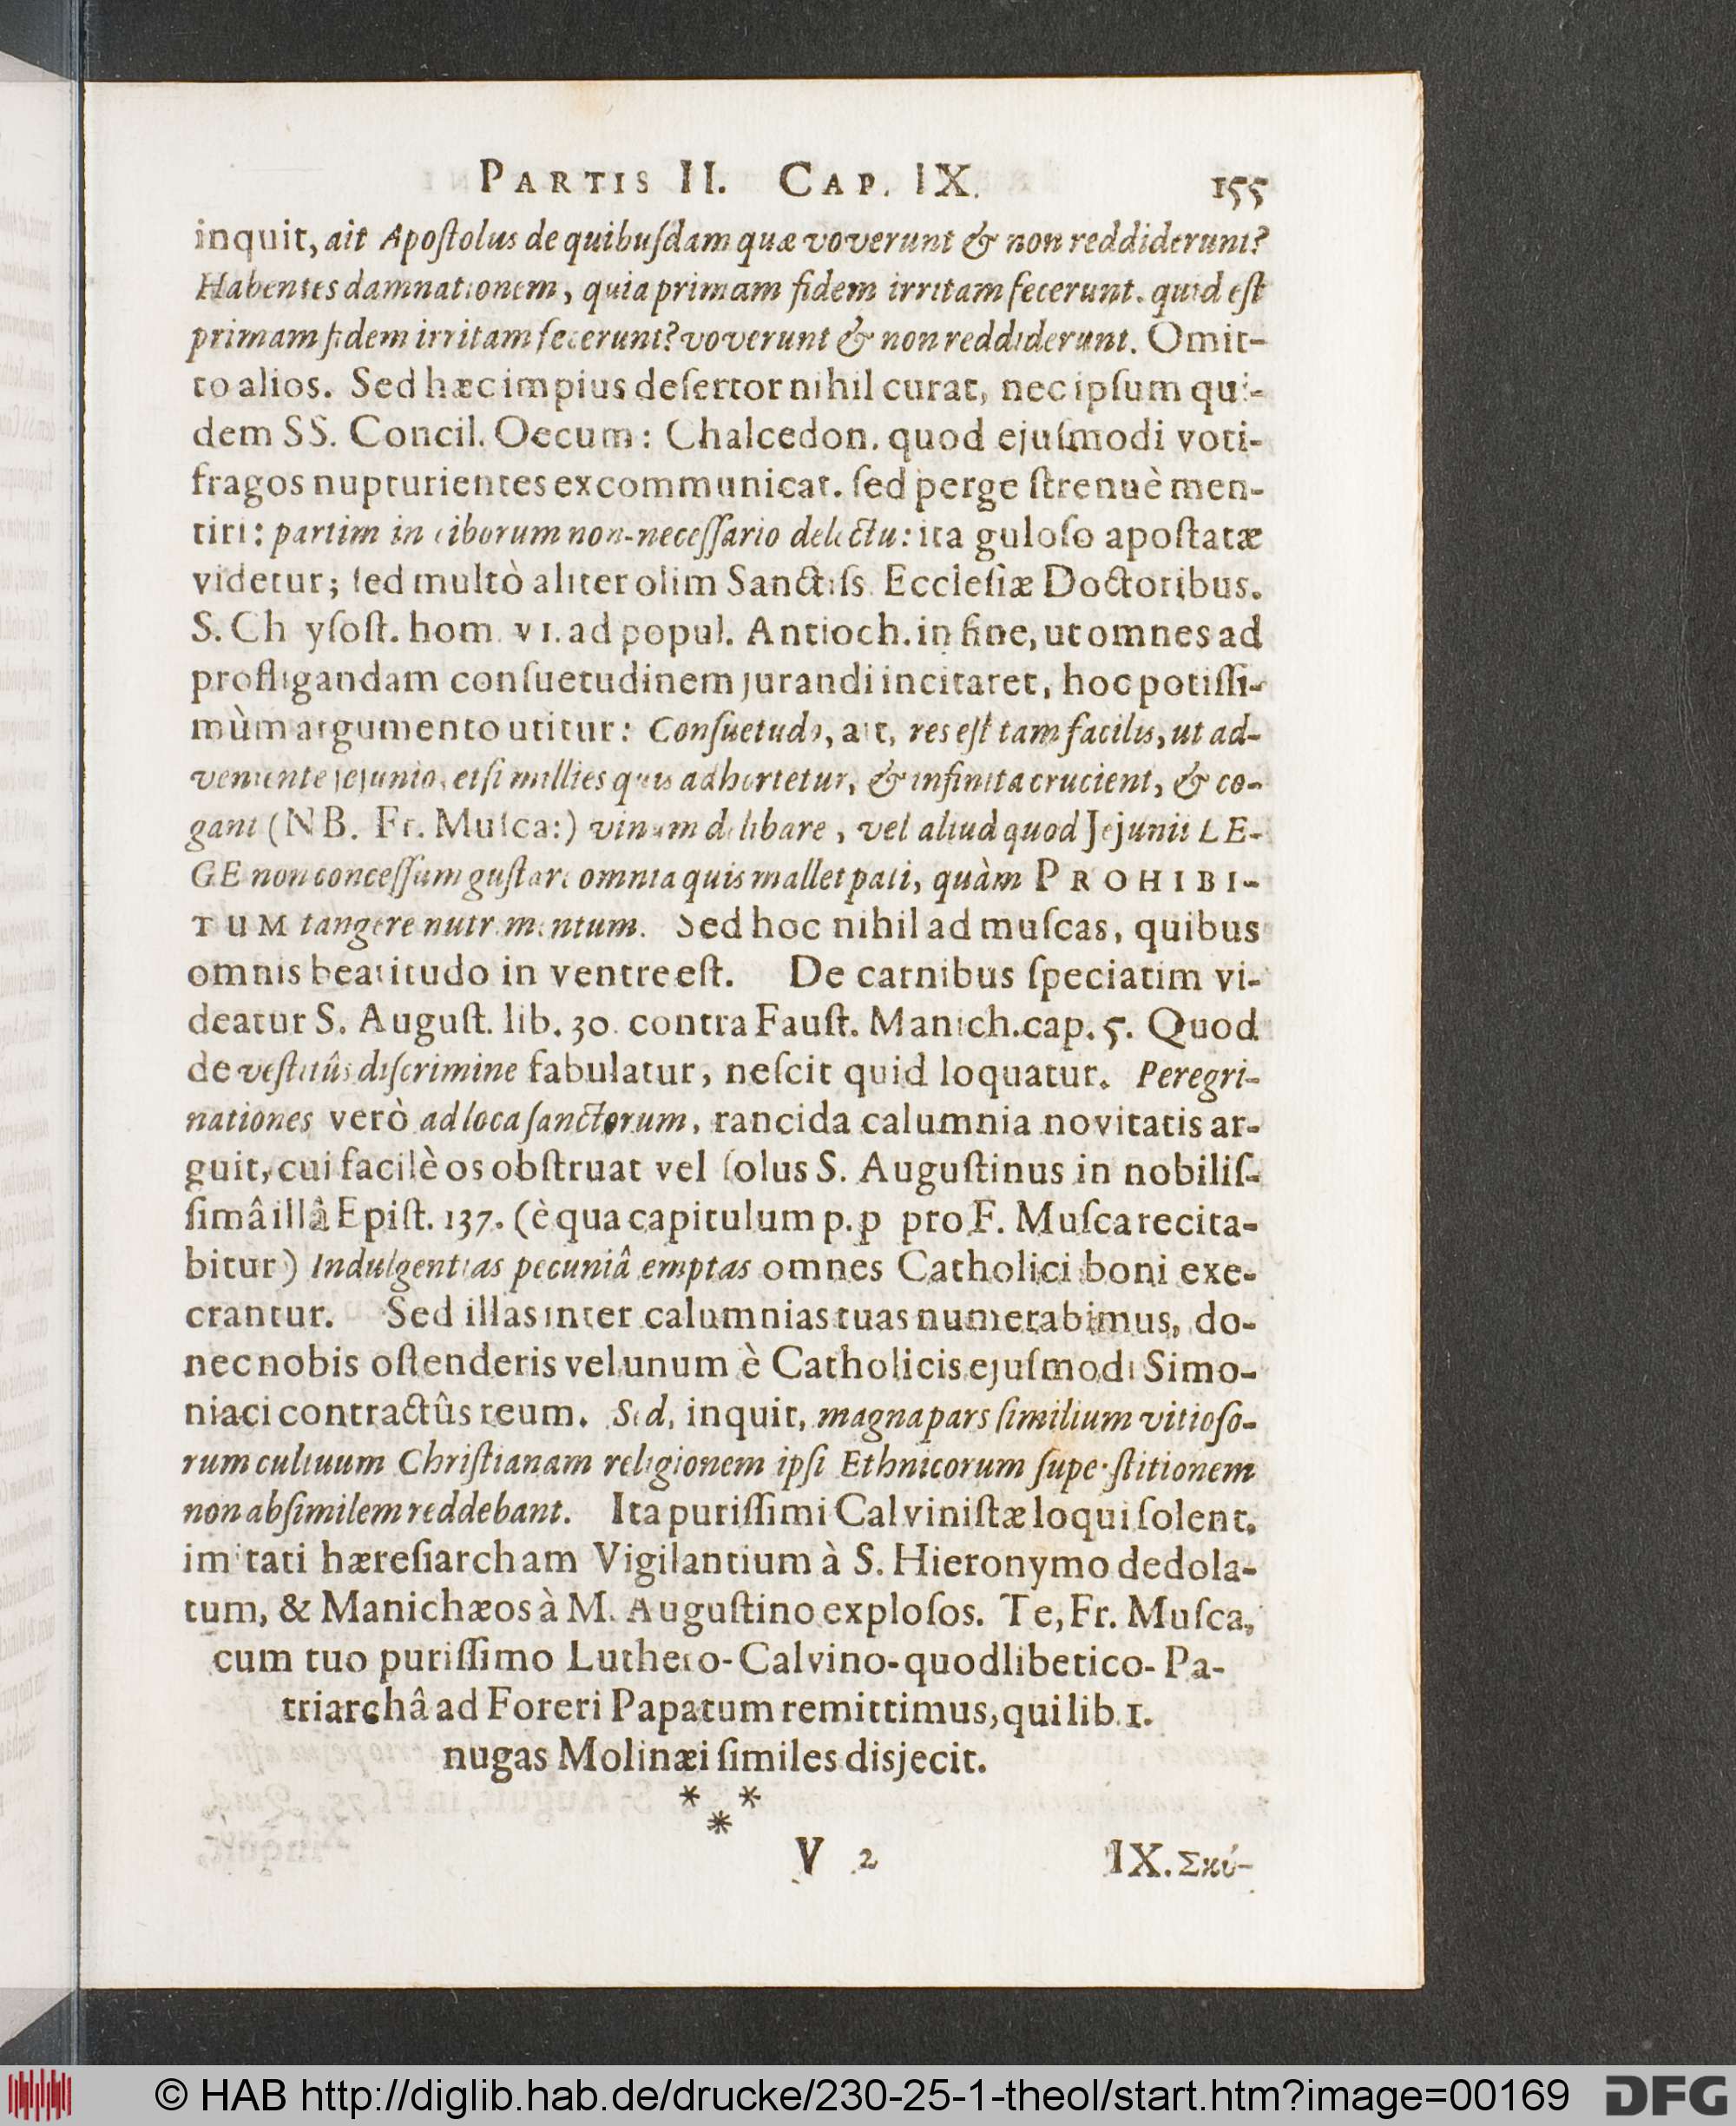 PARTIS II. CAP. IX. 155
inquit, ait Apoſtolus de quibuſdam quæ voverunt & non reddiderunt?
Habentes damnationem, quia primam fidem irritam fecerunt. quid eſt
primam fidem irritam fecerunt? voverunt & non reddiderunt. Omit-
to alios. Sed hæc impius deſertor nihil curat, nec ipſum qui-
dem SS. Concil. Oecum: Chalcedon. quod ejuſmodi voti-
fragos nupturientes excommunicat. ſed perge ſtrenuè men-
tiri: partim in ciborum non-neceſſario delectu: ita guloſo apoſtatæ
videtur; ſed multò aliter olim Sanctiſs. Eccleſiæ Doctoribus.
S. Ch yſoſt. hom. VI. ad popul. Antioch. in fine, ut omnes ad
profligandam conſuetudinem jurandi incitaret, hoc potiſſi-
mùm argumento utitur: Conſuetudo, ait, res eſt tam facilis, ut ad-
veniente jejunio, etſi millies quis adhortetur, & infinita crucient, & co-
gant (NB. Fr. Muſca:) vinum delibare, vel aliud quod Jejunii LE-
GE non conceſſum guſtare omnia quis mallet pati, quàm PROHIBI-
TUM tangere nutrimentum. Sed hoc nihil ad muſcas, quibus
omnis beatitudo in ventre eſt. De carnibus ſpeciatim vi-
deatur S. Auguſt. lib. 30. contra Fauſt. Manich. cap. 5. Quod
de veſtitûs diſcrimine fabulatur, neſcit quid loquatur. Peregri-
nationes verò ad loca ſanctorum, rancida calumnia novitatis ar-
guit, cui facilè os obſtruat vel ſolus S. Auguſtinus in nobiliſ-
ſimâ illâ Epiſt. 137. (è qua capitulum p. p pro F. Muſca recita-
bitur) Indulgentias pecuniâ emptas omnes Catholici boni exe-
crantur. Sed illas inter calumnias tuas numerabimus, do-
nec nobis oſtenderis vel unum è Catholicis ejuſmodi Simo-
niaci contractûs reum. Sed, inquit, magna pars ſimilium vitioſo-
rum cultuum Chriſtianam religionem ipſi Ethnicorum ſuperſtitionem
non abſimilem reddebant. Ita puriſſimi Calviniſtæ loqui ſolent.
imitati hæreſiarcham Vigilantium à S. Hieronymo dedola-
tum, & Manichæos à M. Auguſtino exploſos. Te, Fr. Muſca,
cum tuo puriſſimo Luthero-Calvino-quodlibetico-Pa-
triarchâ ad Foreri Papatum remittimus, qui lib. 1.
nugas Molinæi ſimiles disjecit.
* *
*
V 2 IX. Σκύ-
© HAB http://diglib.hab.de/drucke/230-25-1-theol/start.htm?image=00169 DFG